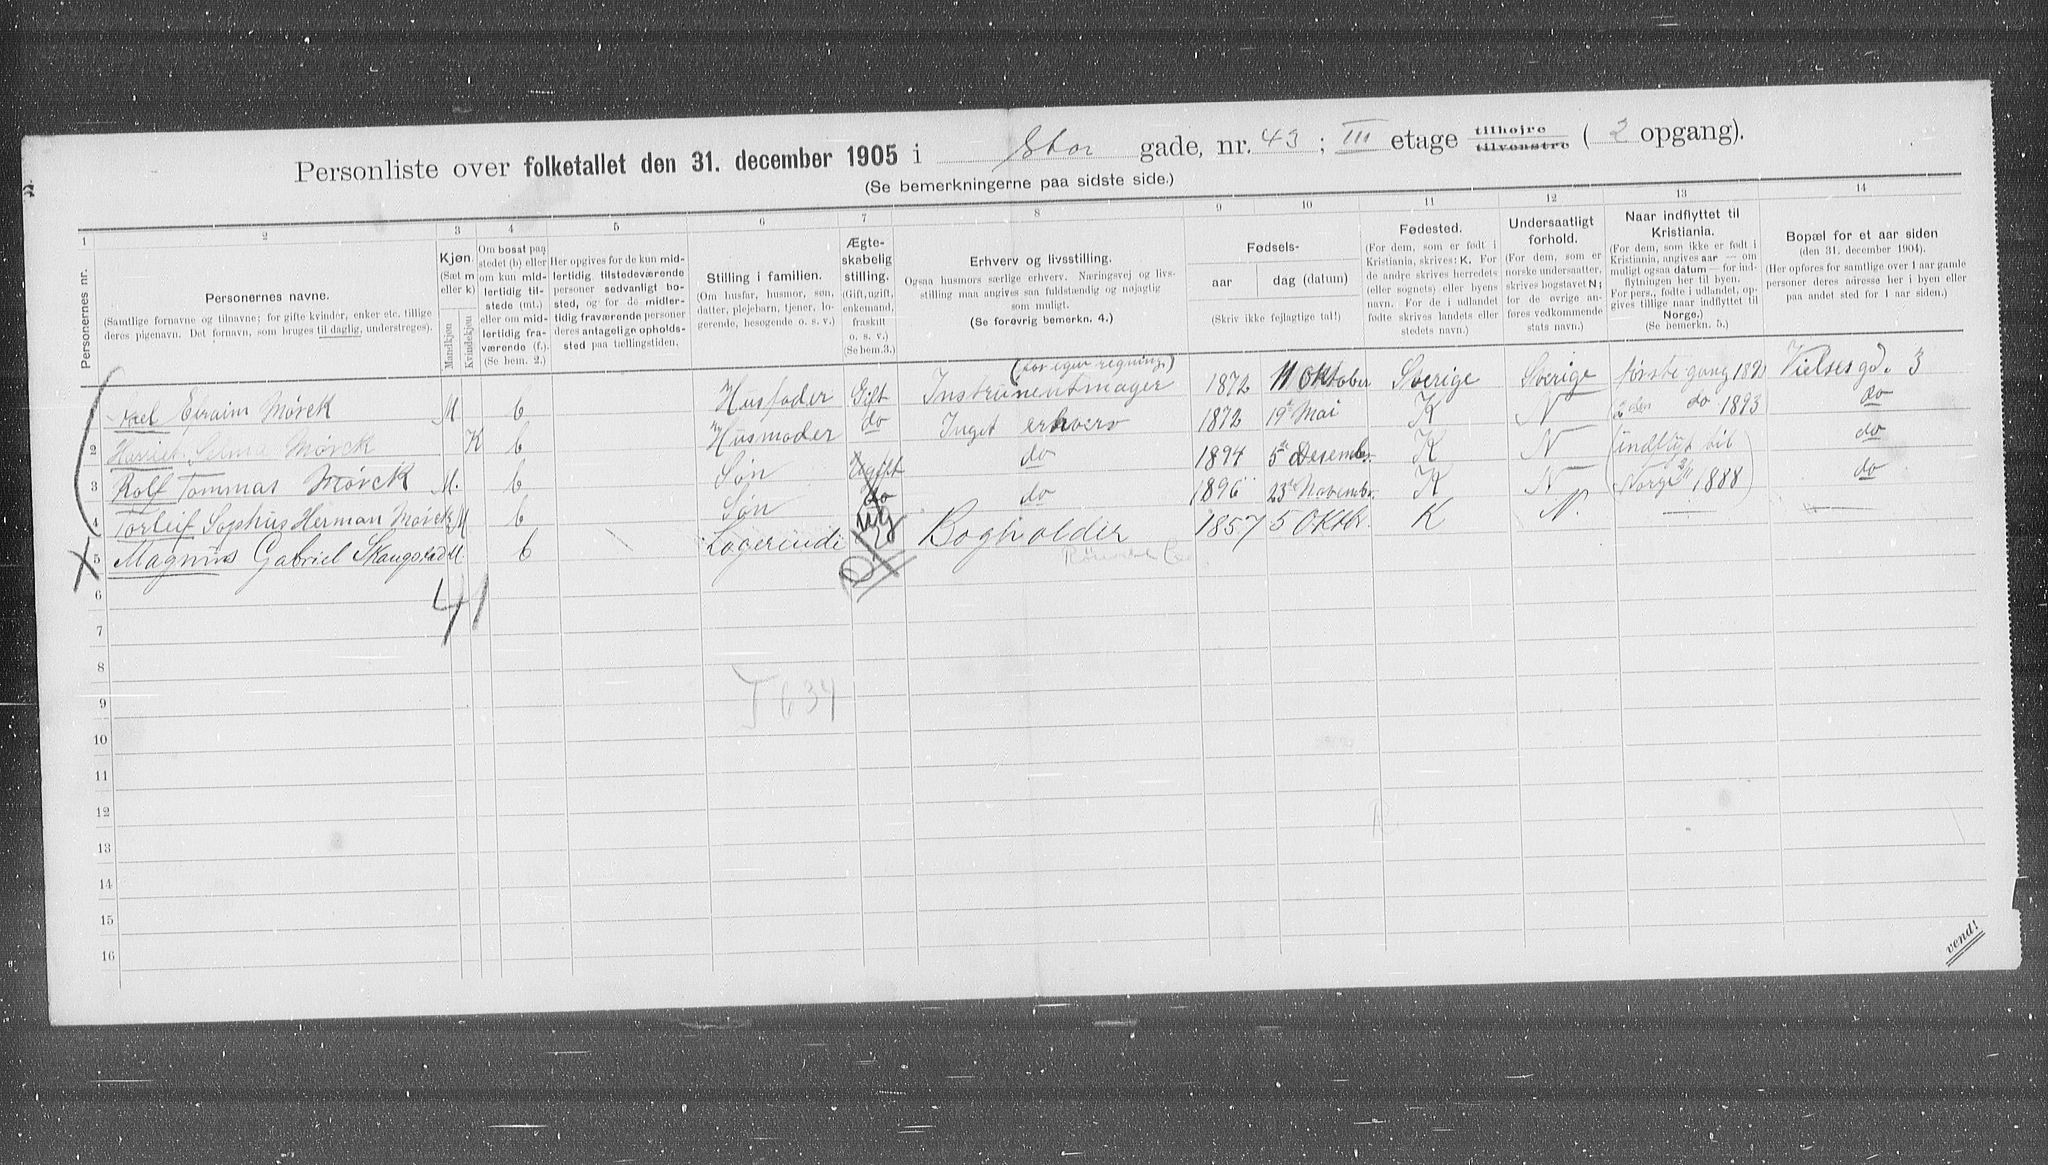 Personliste over folketallet den 31. december 1905 i Stor gade, nr. 43 ; III etage tilhøjre tilvenstre ( 2 opgang).
(Se bemerkningerne paa sidste side.)
1 2 3 4 5 6 7 8 9 10 11 12 13 14
Personernes nr.
Personernes navne.
(Samtlige fornavne og tilnavne; for gifte kvinder, enker etc. tillige deres pigenavn. Det fornavn, som bruges til daglig, understreges).
Kjøn.
(Sæt m eller k)
Mandkjøn
Kvindekjøn
Om bosat paa stedet (b) eller om kun midlertidig tilstede (mt.) eller om midlertidig fraværende (f.). (Se bem. 2.)
Her opgives for de kun midlertidig tilstedeværende personer sedvanligt bosted, og for de midlertidig fraværende personer deres antagelige opholdssted paa tællingstiden.
Stilling i familien.
(Om husfar, husmor, søn, datter, plejebarn, tjener, logerende, besøgende o. s. v.)
Ægteskabelig stilling.
(Gift, ugift, enkemand, fraskilt o. s. v.) (Se bem. 3.)
Erhverv og livsstilling.
Ogsaa husmors særlige erhverv. Næringsvej og livsstilling maa angives saa fuldstændig og nøjagtig som muligt.
(Se forøvrig bemerkn. 4.)
Fødsels-
aar
dag (datum)
(Skriv ikke fejlagtige tal!)
Fødested.
(For dem, som er født i Kristiania, skrives: K. For de andre skrives herredets (eller sognets) eller byens navn. For de i udlandet fødte skrives landets eller stedets navn.)
Undersaatligt forhold.
(For dem, som er norske undersaatter, skrives bogstavet N; for de øvrige anføres vedkommende stats navn.)
Naar indflyttet til Kristiania.
(For dem, som ikke er født i Kristiania, angives aar — om muligt ogsaa datum — for indflytningen her til byen. For pers., fødte i udlandet, opgives tillige naar indflyttet til Norge.)
(Se bemerkn. 5.)
Bopæl for et aar siden
(den 31. december 1904).
(Her opføres for samtlige over 1 aar gamle personer deres adresse her i byen eller paa andet sted for 1 aar siden.)
Axel Efraim Mørck M b Husfader Gift Instrumentmager (for egen regning) 1872 11 Oktober Sverige Sverige første gang 189 Vielsesgd. 3
2 Harriet Selma Mørck K b Husmoder do Inget erhverv 1872 19 Mai K N (2den do 1893) do
3 Rolf Tommas Mørck M. b Søn Ugift do 1894 5 Desembr. K N (indflyt til do
4 Torleif Sophus Herman Mørck M b Søn do do 1896 23 Novembr. K N Norge 1888) do
5 Magnus Gabriel Skaugstad M b Logerende ug Bogholder 1857 5 Oktbr. K N. — —
41
6
7
8
T 634
9
10
11
12
13
14
15
16
vend!